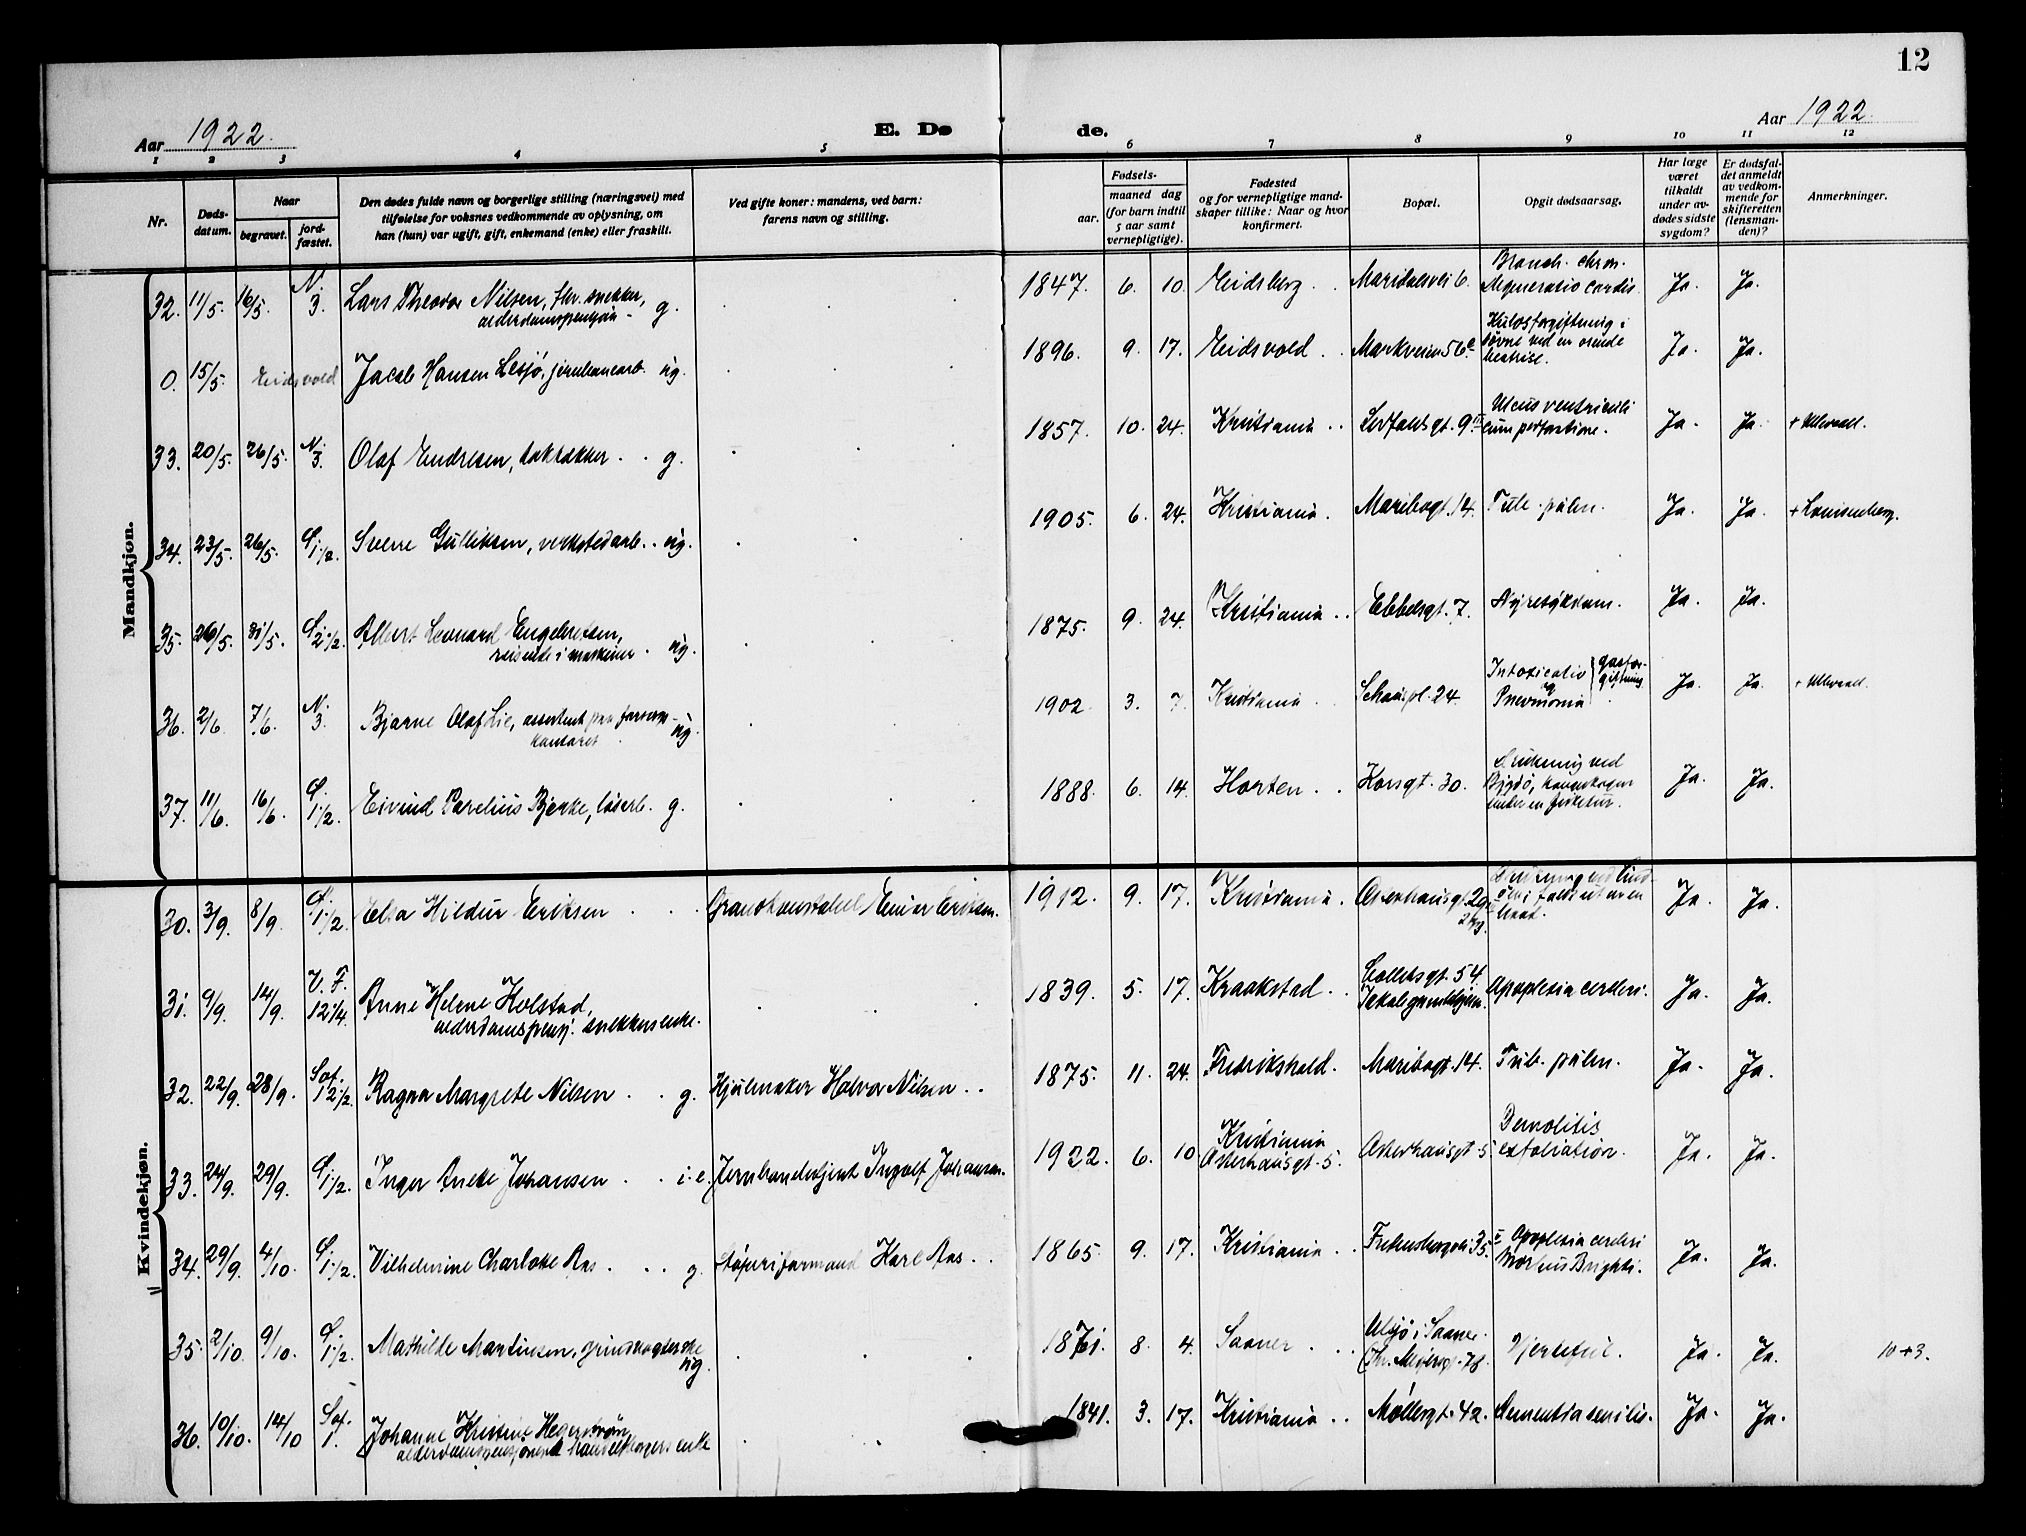 12
Aar 1922.
E. Dø
de.
Aar 1922.
1 2 3 4 5 6 7 8 9 10 11 12
Nr.
Døds-
datum.
Naar
begravet.
jord-
fæstet.
Den dødes fulde navn og borgerlige stilling (næringsvei) med
tilføielse for voksnes vedkommende av oplysning, om
han (hun) var ugift, gift, enkemand (enke) eller fraskilt.
Ved gifte koner: mandens, ved barn:
farens navn og stilling.
Fødsels-
aar.
maaned dag
(for barn indtil
5 aar samt
vernepligtige).
Fødested
og for vernepligtige mand-
skaper tillike: Naar og hvor
konfirmert.
Bopæl.
Opgit dødsaarsag.
Har læge
været
tilkaldt
under av-
dødes sidste
sygdom?
Er dødsfal-
det anmeldt
av vedkom-
mende for
skifteretten
(lensman-
den)?
Anmerkninger.
Mandkjøn.
32. 11/5. 16/5. N. 3. Lars Theodor Nilsen, fhv. snekker, g.
alderdomspension
1847. 6. 10. Eidsberg . . Maridalsvei 6. Bronch. chron. Degeneratio cordis. Ja. Ja.
0. 15/5. Eidsvold Jacob Hansen Lesjö, jernbanearb. ug.
1896. 9. 17. Eidsvold . . Markveien 56 Kulosforgiftning i
søvne ved en osende
Ja. Ja.
33. 20/5. 26/5. N. 3. Olaf Endresen, taktækker . . g.
1857. 10. 24. Kristiania . . 9 Ulcus ventriculi
cum perforatione. Ja. Ja. + Ullevaal.
34. 23/5. 26/5. S. 1 1/2. Sverre Gulliksen, verkstedarb. . ug.
1905. 6. 24. Kristiania . Maribogt. 14. Tub. pulm. Ja. Ja. + Louisenberg.
35. 26/5. 31/5. S. 2 1/2. Albert Leonard Engebretsen,
reisende i maskiner . ug.
1875. 9. 24. Kristiania . . Ebbelsgt. 7. Nyresykdom. Ja. Ja.
36. 2/6. 7/6. N. 3. Bjarne Olaf Lie, assistent paa
kontoret ug.
1902 3. 7. Kristiania . Schouspl. 24. Intoxicatio
Pneumonia
gasfor-
giftning
Ja. Ja. + Ullevaal.
37. 11/6. 16/6. S. 1 1/2. Eivind Parelius Bjerke, løsarb. g.
1888. 6. 14. Horten . . Korsgt. 30. Drukning ved
Bygdö,
under en fisketur. Ja. Ja.
Kvindekjøn.
30. 3/9. 8/9. S. 1 1/2. Elsa Hildur Eriksen . . . Eriksen.
1912. 9. 17. Kristiania . Osterhausgt. Ja. Ja.
31. 9/9. 14/9. V. F. 12 1/4. Anne Helene Holstad,
alderdomspensj. snekkerenke.
1839. 5. 17. Kraakstad . . Collettsgt. 54
Apoplexia cerebri. Ja. Ja.
32. 22/9. 28/9. Sof. 12 1/2. Ragna Margrete Nilsen . . g. Hjulmaker Halvor Nilsen . .
1875. 11. 24. Fredrikshald. Maribogt. 14. Tub. pulm. Ja. Ja.
33. 24/9. 29/9. S. 1 1/2. Inger Anette Johansen . . i. e. Jernhandelsbetjent Ingolf Johansen.
1922. 6. 10 Kristiania
Osterhausgt. 5. Osterhausgt. 5 Dermolitis
exfoliation. Ja. Ja.
34. 29/9. 4/10. S. 1 1/2. Vilhelmine Charlotte Aas . . . g. Støperiformand Karl Aas . .
1865. 9. 17. Kristiania . . Fredensborgvei 35. Apoplexia cerebri
Morbus Brighti. Ja. Ja.
35. 2/10. 9/10. S. 1 1/2. Mathilde Martinsen, ug.
1871. 8. 4. Saaner . . . i Saaner.
Chr. Mejersgt. 78. Hjertefeil. Ja. Ja. 10+3.
36. 10/10. 14/10 Sof. 1. Johanne Kristine Hegerstrøm,
alderdomspensjonert handelsborgers enke
1841. 3. 17. Kristiania . . Møllergt. 42. Dementia senilis. Ja. Ja.